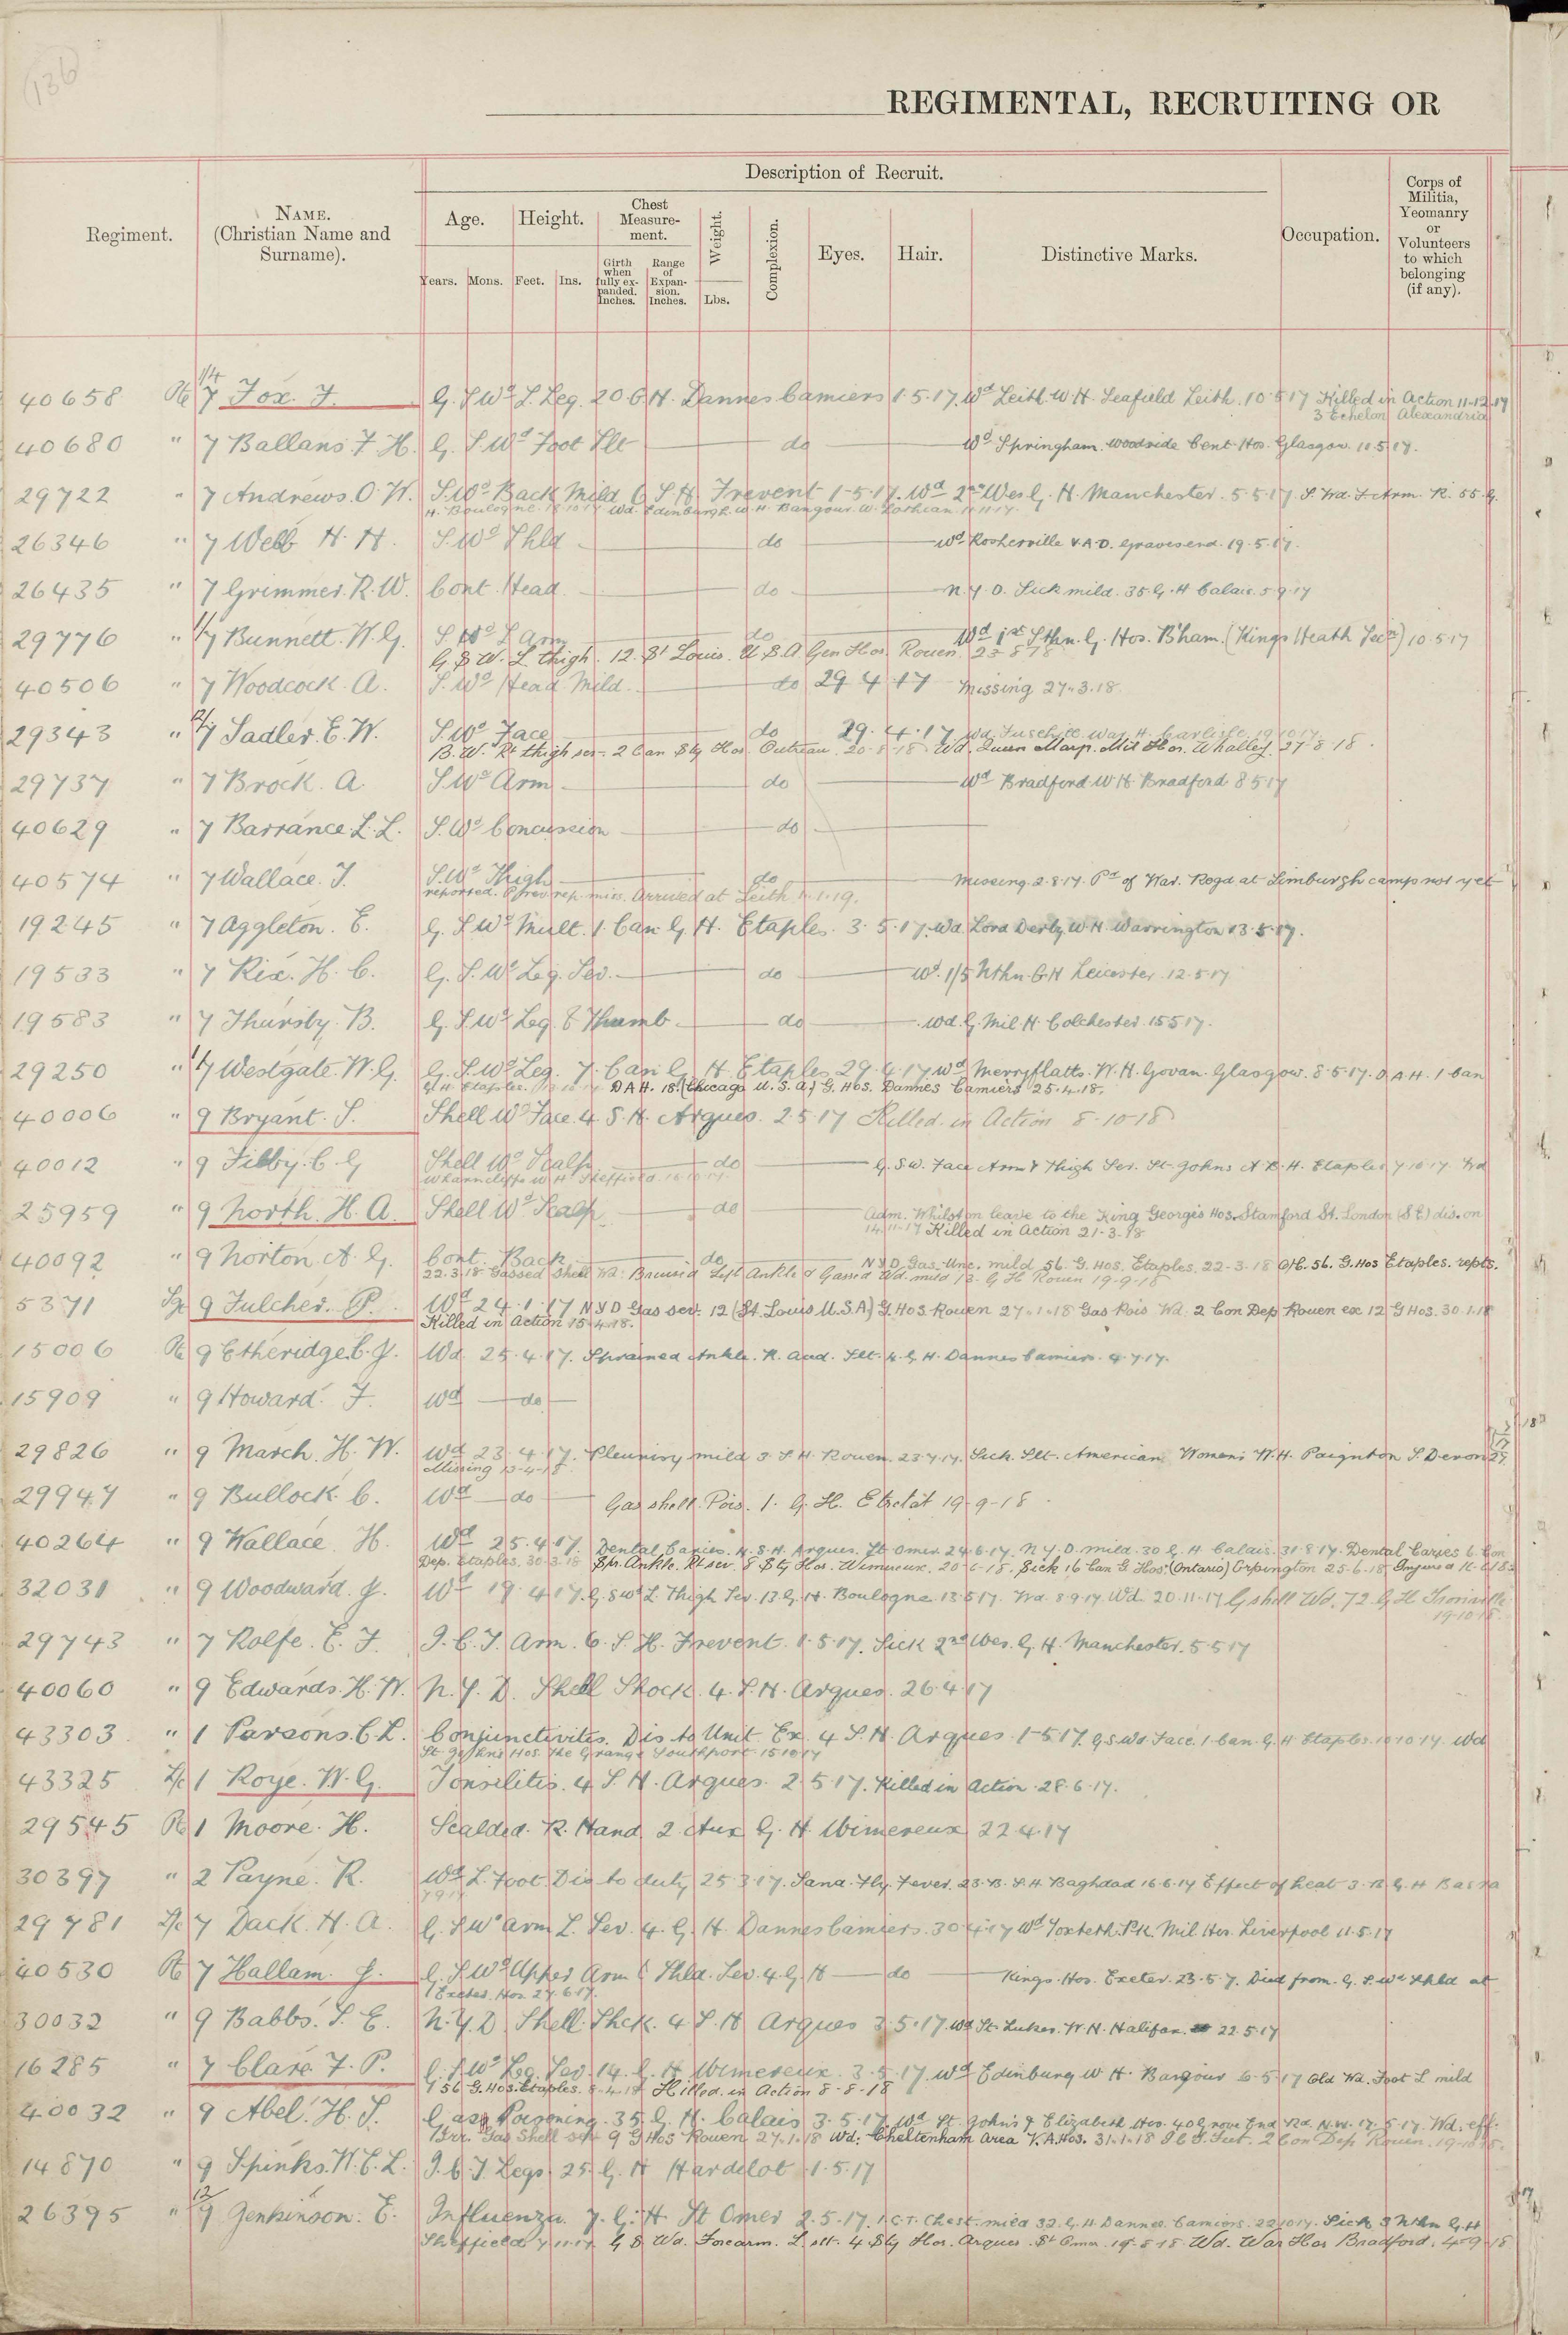 136
REGIMENTAL, RECRUITING OR
Description of Recruit.
Regiment.
NAME.
(Christian Name and
Surname).
Age.
Height.
Chest
Measure-
ment.
Weight.
Complexion.
Eyes.
Hair.
Distinctive Marks.
Occupation.
Corps of
Militia,
Yeomanry
or
Volunteers
to which
belonging
(if any).
Years.
Mons.
Feet.
Ins.
Girth
when
fully ex-
panded.
Inches.
Range
of
Expan-
sion.
Inches.
Lbs.
1/4
40658 Pte 7 Fox. F. G. S Wd L Leg. 20 G H. Dannes Camiers 1.5.17. Wd Leith W H. Seafield Leith. 10.5.17 Killed in Action 11-12-17
3 Echelon Alexandria
40680 " 7 Ballans. F. H. G. S Wd Foot Slt do Wd Springham. Woodside Cent Hos. Glasgow. 10.5.17.
29722 " 7 Andrews. O. H. S. Wd Back Mild 6 S H. Frevent 1-5-17. Wd 2nd Wes G. H. Manchester. 5.5.17 S. Wd. F Arm. R. 55. G.
H. Boulogne. 18.10.17 Wd. Edinburgh. W. H. Bangour. W. Lothian. 11.11.17.
26346 " 7 Webb H. H. S. Wd Shld do Wd Rosherville V.A.D. Gravesend. 19.5.17.
26435 " 7 Grimmer. R. W. Cont. Head. do N. Y. D. Sick mild. 35. G. H Calais. 5.9.17
29776 " 1/7 Bunnett. W. G. S Wd L Arm do Wd 1st Sthn. G. Hos. B'ham. (Kings Heath Sec) 10.5.17
G S W. L thigh. 12. St Louis. U.S.A Gen Hos. Rouen. 23-8-18
40506 " 7 Woodcock. A. S. Wd Head Mild. do 29 4 17 Missing 27.3.18.
29343 " 2/7 Sadler. E. W. S. Wd Face do 29.4.17. Wd. Fusehill War. H. Carlisle. 19.10.17.
B. W. Rt thigh sev - 2 Can Sty Hos. Outreau. 20-8-18 Wd. Queen Mary. Mil Hos. Whalley. 27-8-18.
29737 " 7 Brock. A. S Wd Arm do Wd Bradford W H Bradford 8 5 17
40629 " 7 Barrance. L. L. S. Wd Concussion do
40574 " 7 Wallace. J. S. Wd Thigh do Missing. 2.8.17. Pr of War. Regd at Limburgh camp not yet
reported. P. prev rep. miss. Arrived at Leith 1.1.19.
19245 " 7 Aggleton. E. G. S Wd Mult. 1. Can G H. Etaples. 3.5.17. Wd Lord Derby W H Warrington 13.5.17.
19533 " 7 Rix. H. C. G. S. Wd Leg. Sev. do Wd. 1/5 Nthn G H Leicester 12.5.17
19583 " 7 Thursby. B. G. S Wd Leg. & Thumb. do Wd. G. Mil H. Colchester. 15 5 17.
29250 " 1/7 Westgate. W. G. G. S. Wd Leg. 7. Can G. H. Etaples 29.4.17 Wd Merryflatts. W. H. Govan. Glasgow. 8.5.17. D A H. 1 Can
G H. Etaples. 13.10.17. DAH. 18 (Chicago U. S. A) G. Hos. Dannes Camiers 25.4.18.
40006 " 9 Bryant. S. Shell Wd Face. 4. S. H. Arques. 2.5.17 Killed in Action 8-10-18
40012 " 9 Tibby. C. G Shell Wd Scalp. do G. S. W. Face Arm & Thigh Sev. St. Johns A. B. H. Etaples 7.10.17. Wd
Wharncliffe W. H. Sheffield. 16.10.17.
25959 " 9 North. H. A. Shell Wd Scalp. do Adm. Whilst on leave to the King Georges Hos. Stamford St. London (S E) dis. on
14.11.17 Killed in Action 21-3-18
40092 " 9 Norton. A. G. Cont. Back. do N Y D Gas. Unc. mild 56. G. Hos. Etaples. 22-3-18 Ofc. 56. G. Hos Etaples. repts.
22.3.18 Gassed Shell Wd. Bruised Left Ankle & Gassed Wd. mild 12. G H Rouen 19-9-18
5371 Sgt 9 Fulcher. P. Wd 24.1.17 N Y D Gas sev. 12 (St. Louis U.S.A) G Hos. Rouen 27-1-18 Gas Pois Wd. 2 Con Dep Rouen ex 12 G Hos. 30.1.18
Killed in Action 15.4.18.
15006 Pte 9 Etheridge. C. J. Wd 25.4.17. Sprained Ankle. R. Acd. Slt. 4. G H. Dannes Camiers. 4.7.17.
15909 " 9 Howard. F. Wd do
29826 " 9 March. H. W. Wd 23.4.17. Pleurisy mild 3. S H. Rouen. 23.7.17. Sick. Slt. American Womens W. H. Paignton S. Devon
Missing 12-4-18
29947 " 9 Bullock. C. Wd do Gas shell. Pois. 1. G. H. Etretat 19-9-18
40264 " 9 Wallace. H. Wd 25.4.17. Dental Caries. 4. S H. Arques. St Omer. 24.6.17. N Y. D. mild. 30 G. H Calais. 31.8.17. Dental Caries 6. Con
Dep. Etaples. 30.3.18 Spr. Ankle. Rt sev 8 Sty Hos. Wimereux. 20-6-18. Sick 16 Can G Hos. (Ontario) Orpington 25.6.18
32031 " 9 Woodward. J. Wd 19.4.17. G. S Wd L. Thigh Sev. 13. G. H. Boulogne. 13.5.17. Wd 8.9.17 Wd. 20.11.17 G shell Wd. 72. G H Trouville
19-10-18.
29743 " 7 Rolfe. E. F. I. C. T. Arm. 6. S. H. Frevent. 1.5.17. Sick 2nd Wes. G H. Manchester. 5.5.17
40060 " 9 Edwards. H. W. N. Y. D. Shell Shock. 4. S. H. Arques. 26.4.17
43303 " 1 Parsons. C. L. Conjunctivites. Dis to Unit. Ex. 4 S. H. Arques. 1-5.17. G S Wd Face. 1 Can. G. H Etaples. 10.10.17. Wd
St. John's Hos. The Grange Southport 15.10.17
43325 L/c 1 Roye. W. G. Tonsilitis. 4 S. H. Arques. 2.5.17. Killed in Action. 28.6.17.
29545 Pte 1 Moore. H. Scalded. R. Hand 2. Aux G. H. Wimereux 22.4.17
30397 " 2 Payne. R. Wd L. Foot. Dis to duty 25.3.17. Sand. Fly Fever. 23. B. S. H. Baghdad 16.6.17 Effect of heat 3. B. G. H Basra
7 9 17
29781 L/c 7 Dack. H. A. G. S Wd Arm L. Sev. 4. G. H. Dannes Camiers. 30.4.17 Wd Toxteth. Pk. Mil Hos. Liverpool 11.5.17
40530 Pte 7 Hallam. J. G. S Wd Upper Arm & Shld. Sev. 4. G H do Kings. Hos. Exeter. 23.5.7. Died from. G. S. Wd Shld at
Exeter. Hos. 27.6.17.
30032 " 9 Babbs. S. E. N. Y. D Shell. Shck. 4 S. H Arques 3.5.17. Wd St. Lukes. W. H. Halifax. 22.5.17
16285 " 7 Clare. F. P. G. S Wd Leg. Sev. 14. G. H. Wimereux. 3.5.17 Wd Edinburg W H. Bangour 6.5.17 Old Wd. Foot L mild
56 G. Hos. Etaples. 8.4.18 Killed. in Action 8-8-18
40032 " 9 Abel. H. S. Gas Poisoning. 35 G. H. Calais 3.5.17 Wd St. John's & Elizabeth Hos. 40 Grove End Rd. N. W. 17.5.17. Wd. eff.
Irr. Gas Shell sev 9 G Hos Rouen. 27.1.18 Wd: Cheltenham Area V. A. Hos. 31.1.18 2 Con Dep Rouen. 19-10-18.
14870 " 9 Spinks. W. E. L. I. C. T. Legs 25. G. H Hardelot 1.5.17
26395 " 12/9 Jenkinson. E. Influenza. 7. G. H. St Omer 2.5.17. I. C. T. Chest. mild 32. G. H Dannes. Camiers. 22.10.17. Sick 3 Nthn G. H
Sheffield 7.11.17. G S Wd. Forearm. L. slt. 4 Sty Hos. Arques. St Omer. 19-8-18 Wd. War Hos Bradford. 4-9-18